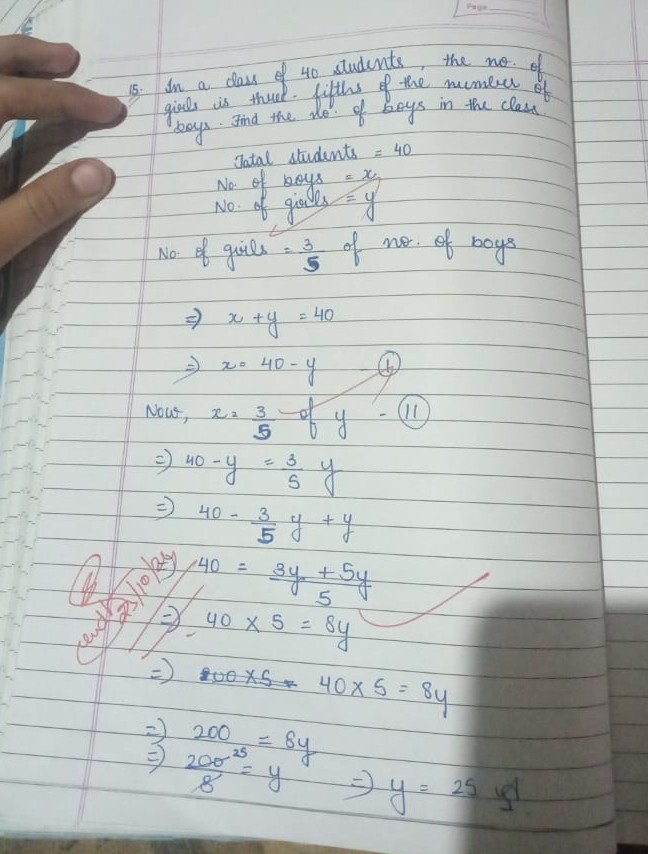 Page
15. In a class of 40 students, the no. of
girls is three-fifths of the number of
boys. Find the No. of boys in the class.
Total students = 40
No. of boys = x
No. of girls = y
No. of girls = 3/5 of no. of boys
=> x + y = 40
=> x = 40 - y - I
Now, x = 3/5 of y - II
=> 40 - y = 3/5 y
=> 40 - 3/5 y + y
=> 40 = 3y + 5y / 5
=> 40 x 5 = 8y
=> 200 x 5 = 40 x 5 = 8y
=> 200 = 8y
=> 200/8 25 = y => y = 25